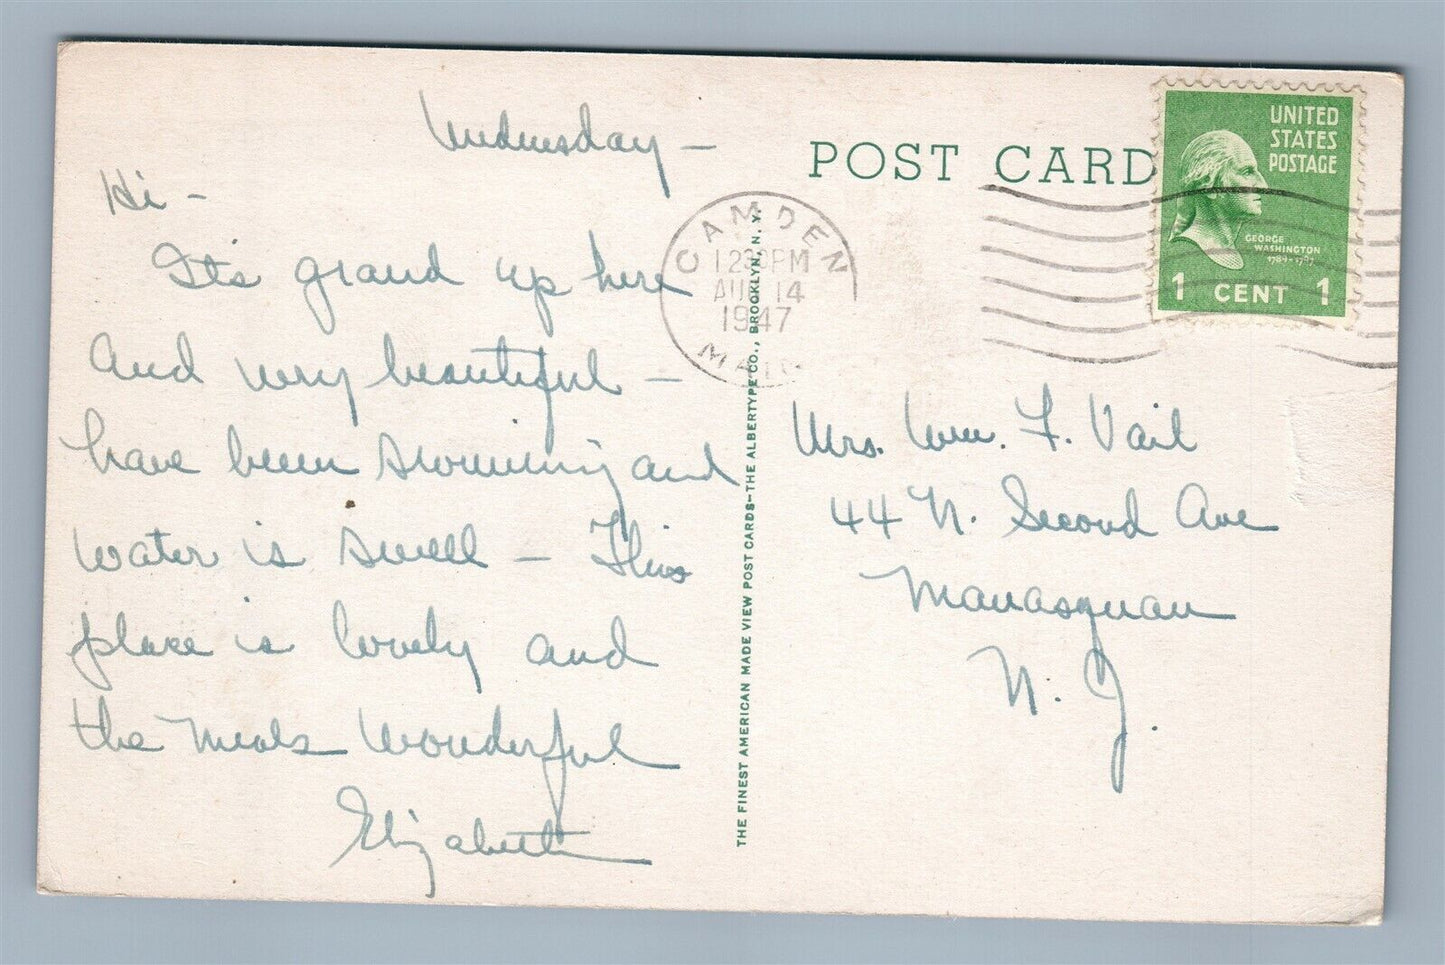 Wednesday —
Hi —
It's grand up here
and very beautiful —
have been swimming and
water is swell — This
place is lovely and
the meals wonderful
Elizabeth
POST CARD
CAMDEN
12 PM
AUG 14
1947
MAINE
UNITED
STATES
POSTAGE
GEORGE
WASHINGTON
1789-1797
1 CENT 1
THE FINEST AMERICAN MADE VIEW POST CARDS—THE ALBERTYPE CO., BROOKLYN, N. Y.
Mrs. Wm. F. Vail
44 N. Second Ave
Manasquan
N. J.